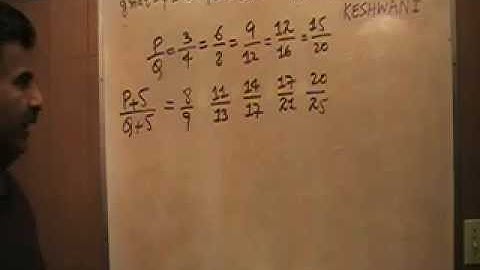 KESHWANI
P/Q = 3/4 = 6/8 = 9/12 = 12/16 = 15/20
P+5/Q+5 = 8/9 11/13 14/17 17/21 20/25